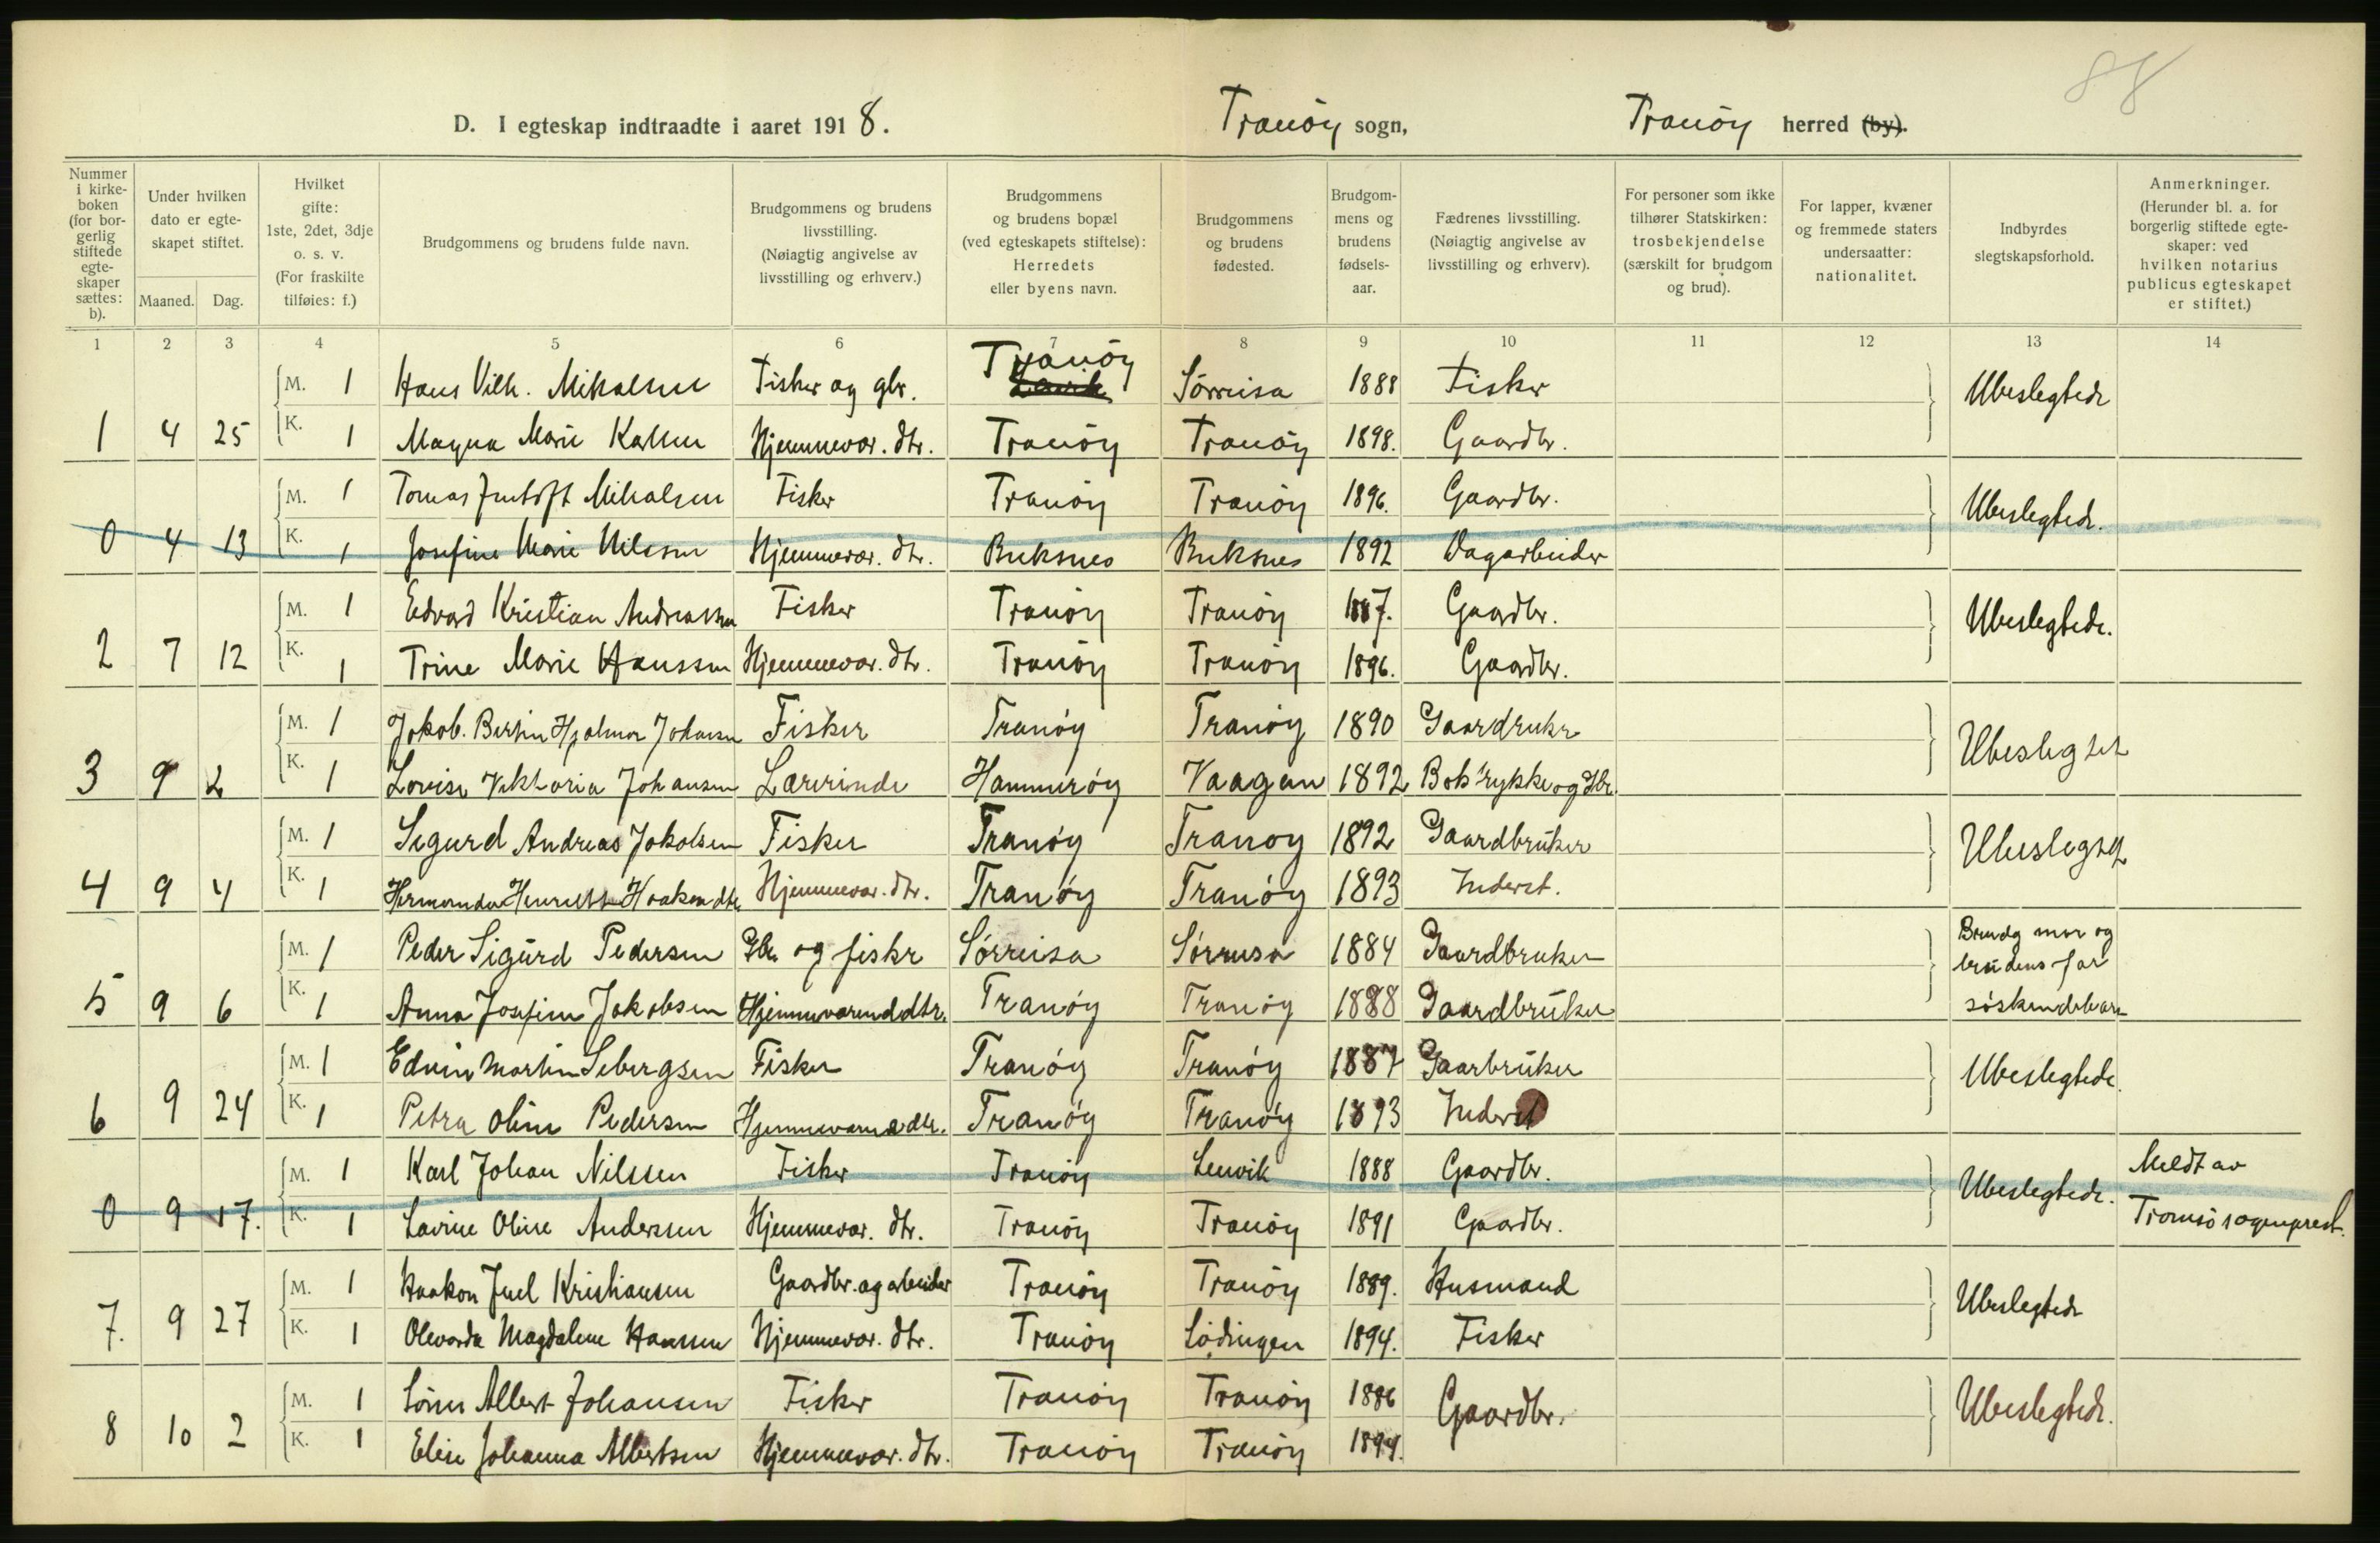 88
D. I egteskap indtraadte i aaret 1918. Tranöy sogn, Tranöy herred (by).
Nummer i kirkeboken (for borgerlig stiftede egteskaper sættes: b).
Under hvilken dato er egteskapet stiftet.
Maaned. Dag.
Hvilket gifte: 1ste, 2det, 3dje o. s. v. (For fraskilte tilføies: f.)
Brudgommens og brudens fulde navn.
Brudgommens og brudens livsstilling. (Nøiagtig angivelse av livsstilling og erhverv.)
Brudgommens og brudens bopæl (ved egteskapets stiftelse): Herredets eller byens navn.
Brudgommens og brudens fødested.
Brudgommens og brudens fødselsaar.
Fædrenes livsstilling. (Nøiagtig angivelse av livsstilling og erhverv).
For personer som ikke tilhører Statskirken: trosbekjendelse (særskilt for brudgom og brud).
For lapper, kvæner og fremmede staters undersaatter: nationalitet.
Indbyrdes slegtskapsforhold.
Anmerkninger. (Herunder bl. a. for borgerlig stiftede egteskaper: ved hvilken notarius publicus egteskapet er stiftet.)
1 2 3 4 5 6 7 8 9 10 11 12 13 14
M. 1 Hans Vilh. Mikalsen Fisker og gbr. Tranöy Sörreisa 1888 Fisker Ubeslegtede
1 4 25 K. 1 Magna Marie Karlsen Hjemmevær. dtr. Tranöy Tranöy 1898. Gaardbr.
M. 1 Tomas Mikalsen Fisker Tranöy Tranöy 1896. Gaardbr. Ubeslegtede.
0 4 13 K. 1 Josefine Marie Nilssen Hjemmevær. dtr. Buksnes Buksnes 1892 Dagarbeider
M. 1 Edvard Kristian Andreassen Fisker Tranöy Tranöy 1887. Gaardbr. Ubeslegtede.
2 7 12 K. 1 Trine Marie Hanssen Hjemmevær. dtr. Tranöy Tranöy 1896. Gaardbr.
M. 1 Jakob. Bertin Hjalmar Johansen Fisker Tranöy Tranöy 1890 Gaardruker Ubeslegtet
3 9 2 K. 1 Lovise Viktoria Johansen Lærerinde Hammeröy Vaagan 1892 Boktrykker og Gbr.
M. 1 Sigurd Andreas Jakobsen Fisker Tranöy Tranoy 1892 Gaardbruker
4 9 4 K. 1 Henriette Haakondtr Hjemmevær. dtr. Tranöy Tranöy 1893 Inderst.
M. 1 Peder Sigurd Pedersen Gbr. og fisker Sörreisa Sörreisa 1884 Gaardbruker Brudg mor og
brudens far
5 9 6 K. 1 Anna Josefine Jakobsen Hjemmværenddtr. Tranöy Tranöy 1888 Gaardbruker söskendebarn
M. 1 Edvin Martin Sebergsen Fisker Tranöy Tranöy 1887 Gaarbruker Ubeslegtede.
6 9 24 K. 1 Petra Oline Pedersen Tranöy Tranöy 1893 Inderst
M. 1 Karl Johan Nilssen Fisker Tranöy Lenvik 1888 Gaardbr. Ubeslegtede. Meldt av
0 9 17. K. 1 Lavine Oline Anderssen Hjemmevær. dtr. Tranöy Tranöy 1891 Gaardbr. Tromsö sogneprest.
M. 1 Haakon Juel Kristiansen Gaardbr. og arbeider Tranöy Tranöy 1889. Husmand Ubeslegtede
7. 9 27 K. 1 Olevarda Magdalene Hanssen Hjemmevær. dtr. Tranöy Lödingen 1894. Fisker
M. 1 Sören Albert Johansen Fisker Tranöy Tranöy 1886 Gaardbr. Ubeslegtede.
8 10 2 K. 1 Elise Johanna Albertsen Hjemmevær. dtr. Tranöy Tranöy 1894.